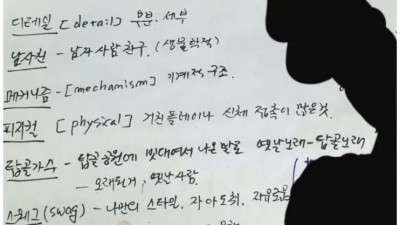 디테일 [detail] 부분. 세부
남사친 - 남자 사람 친구. (생물학적)
메커니즘 - [mechanism] 기계적 구조.
피지컬 [physical] 거친 플레이나 신체 접촉이 많은것.
탑골가수 - 탑골공원에 빗대여서 나온말로 옛날노래 - 탑골노래
- 오래된거, 옛날사람.
스웨그 (swag) - 나만의 스타일. 자아도취, 자유로움